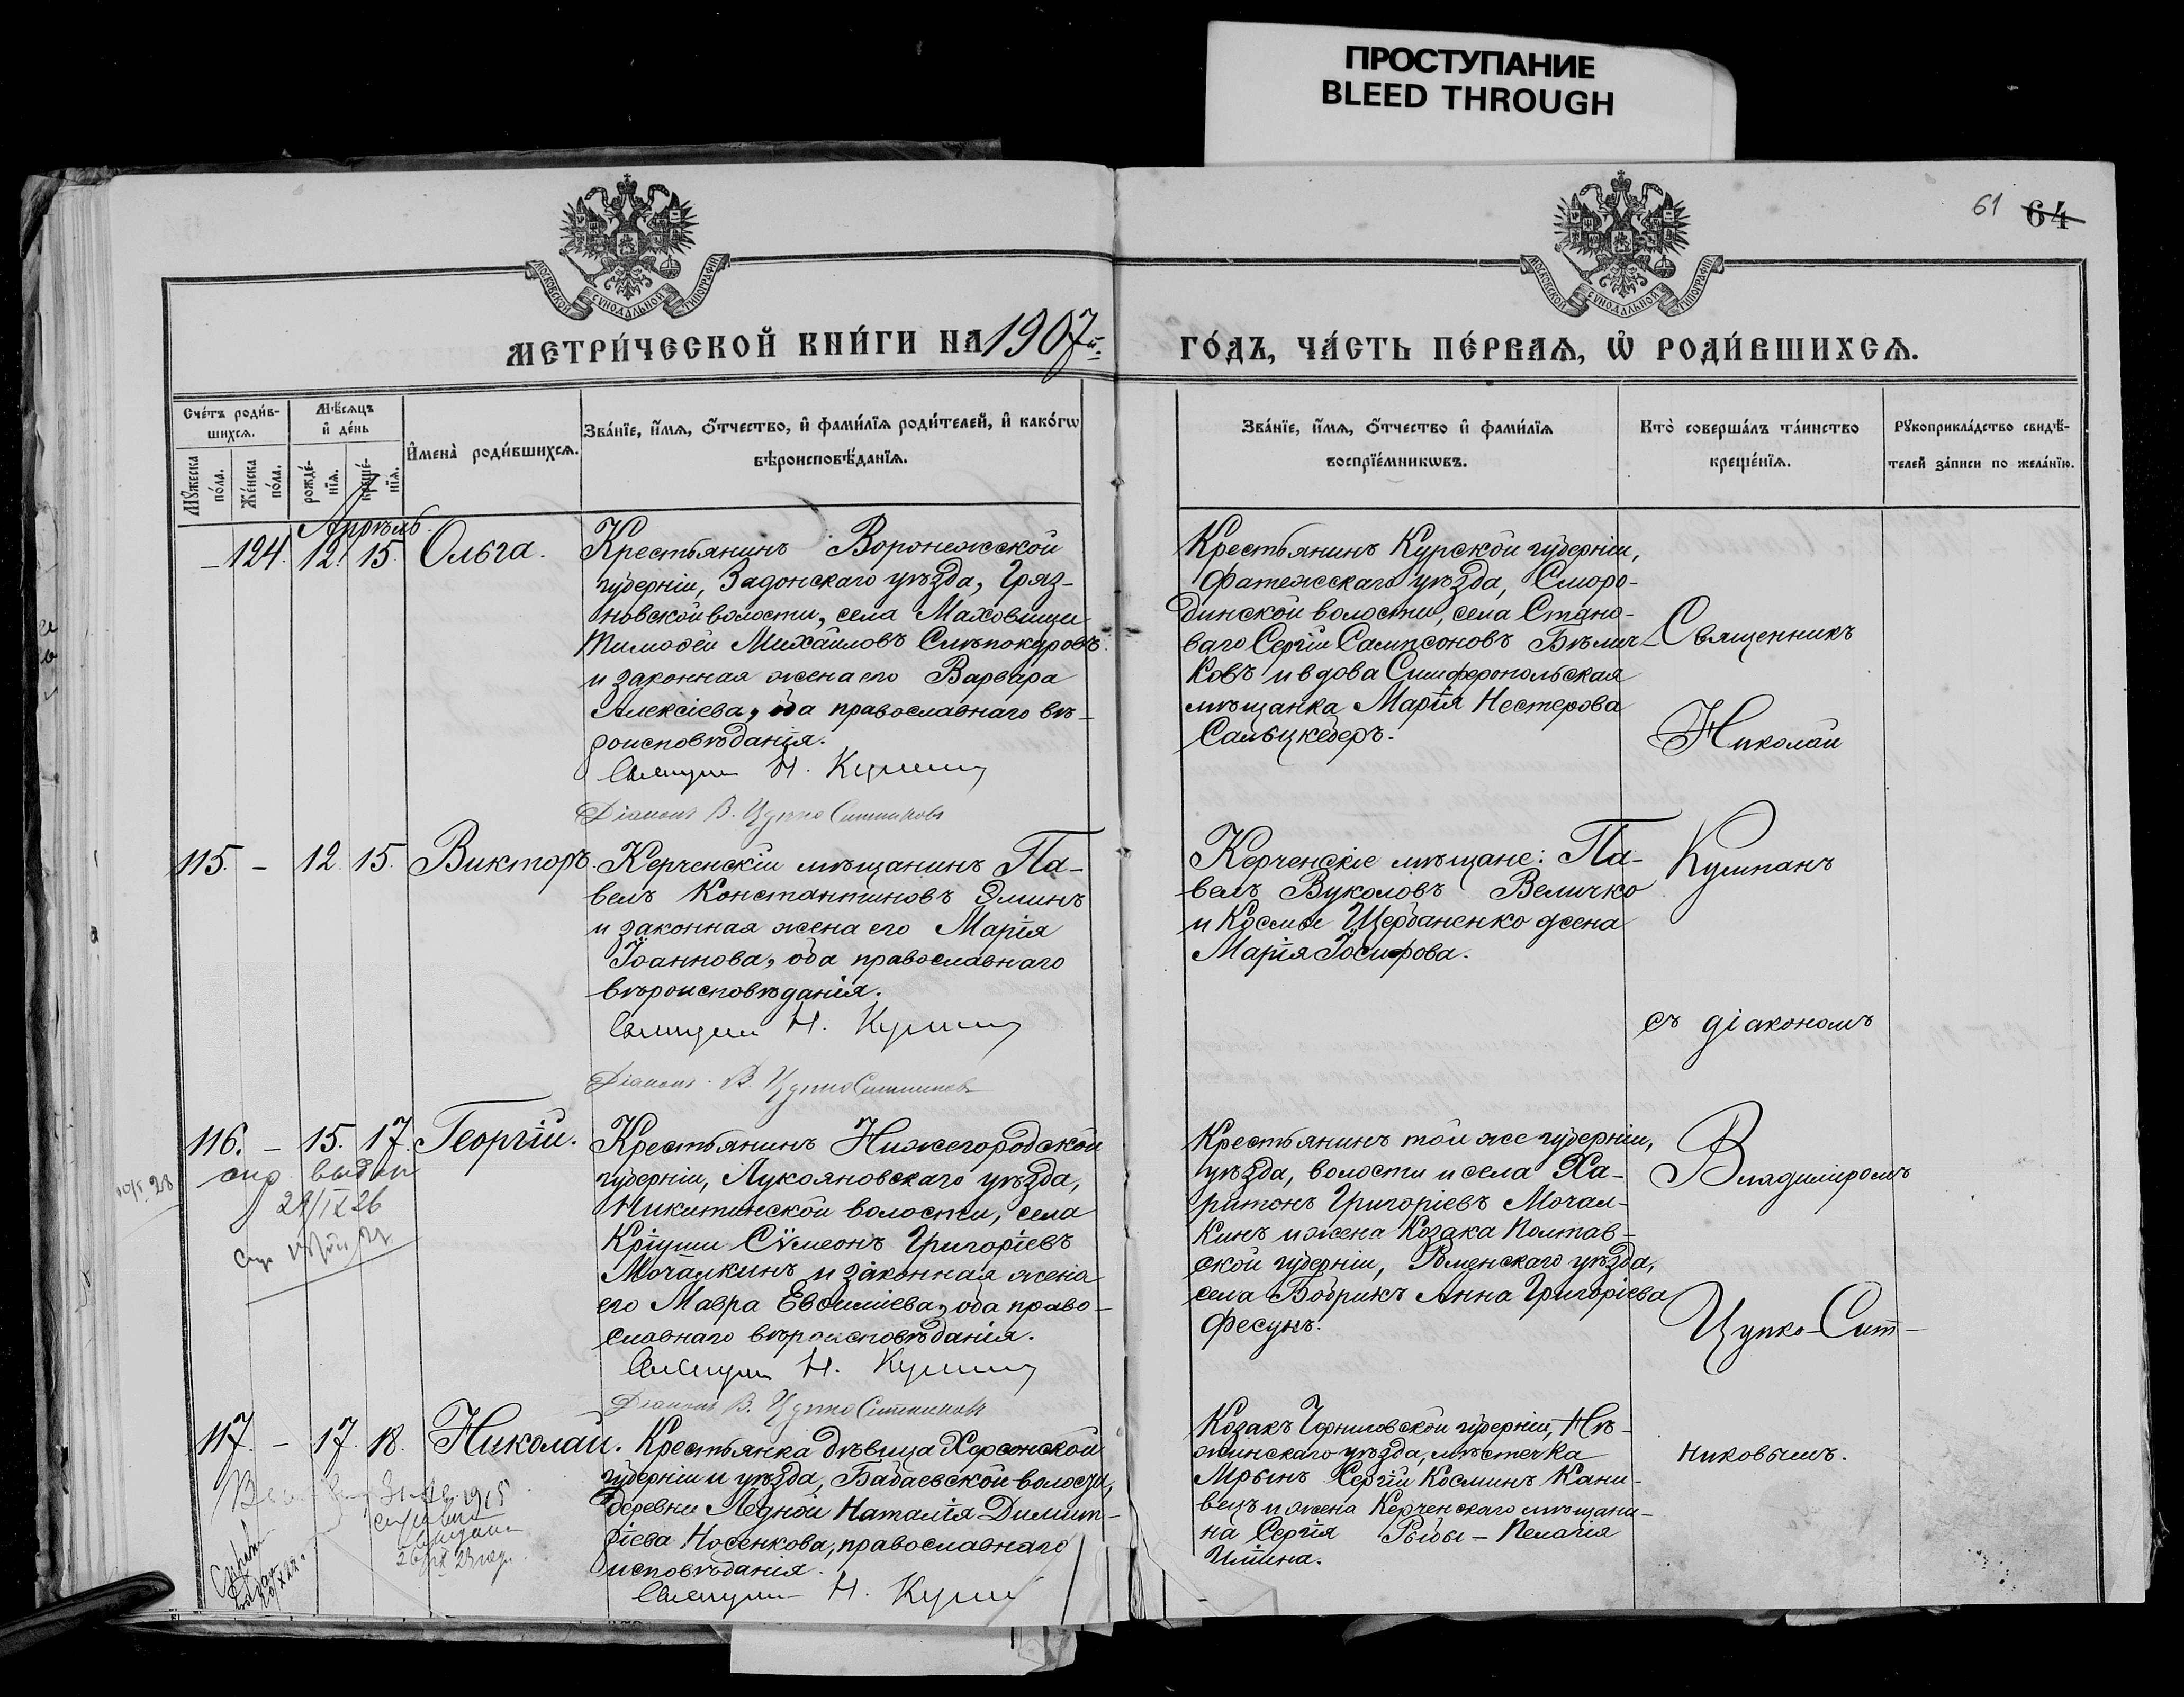 ПРОСТУПАНИЕ
BLEED THROUGH
61 64
МОСКОВСКОЙ СѴНОДАЛЬНОЙ ТИПОГРАФІИ
МОСКОВСКОЙ СѴНОДАЛЬНОЙ ТИПОГРАФІИ
МЕТРИ́ЧЕСКОЙ КНИ́ГИ НА 1907й.
ГО́ДЪ, ЧА́СТЬ ПЕ́РВАѦ, Ѡ РОДИ́ВШИХСѦ.
Сче́тъ роди́в-
шихсѧ.
Мѣ́сѧцъ
и де́нь
Мꙋ́жеска
по́ла.
Же́нска
по́ла.
рожде́-
нїѧ.
креще́-
нїѧ.
Имена̀ роди́вшихсѧ.
Зва́нїе, и́мѧ, о́тчество, и фами́лїѧ роди́телей, и како́гѡ
вѣроисповѣ́данїѧ.
Зва́нїе, и́мѧ, о́тчество и фами́лїѧ
воспрїе́мникѡвъ.
Кто̀ соверша́лъ та́инство
креще́нїѧ.
Рꙋкоприкла́дство свидѣ́-
телей за́писи по жела́нїю.
Апрѣль
– 124. 12. 15. Ольга.
Крестьянинъ Воронежской
губерніи, Задонскаго уѣзда, Гряз-
новской волости, села Маховищи
Тимоѳей Михайловъ Слѣпокуровъ
и законная жена его Варвара
Алексіева, оба православнаго вѣ-
роисповѣданія.
Священникъ Н. Кумпанъ
Діаконъ В. Цупко Ситниковъ
Крестьянинъ Курской губерніи,
Фатежскаго уѣзда, Сморо-
динской волости, села Стано-
ваго Сергій Сампсоновъ Бѣлич-
ковъ и вдова Симферопольская
мѣщанка Марія Нестерова
Сальцкеберъ.
115. – 12 15. Викторъ.
Керченскій мѣщанинъ Па-
велъ Константиновъ Эминъ
и законная жена его Марія
Іоаннова, оба православнаго
вѣроисповѣданія.
Священникъ Н. Кумпанъ
Діаконъ В. Цупко Ситниковъ
Керченскіе мѣщане: Па-
велъ Вуколовъ Величко
и Косьмы Щербаненко жена
Марія Іосифова.
116. – 15. 17. Георгій.
спр. выдан
29/IX 26
10/I 28
Крестьянинъ Нижегородской
губерніи, Лукояновскаго уѣзда,
Никитинской волости, села
Кріуши Сѵмеонъ Григоріевъ
Мочалкинъ и законная жена
его Мавра Евѳиміева, оба право-
славнаго вѣроисповѣданія.
Священникъ Н. Кумпанъ
Діаконъ В. Цупко Ситниковъ
Крестьянинъ той же губерніи,
уѣзда, волости и села Ха-
ритонъ Григоріевъ Мочал-
кинъ и жена Козака Полтав-
ской губерніи, Роменскаго уѣзда,
села Бобрикъ Анна Григоріева
Фесунъ.
117. – 17. 18. Николай.
1915
Крестьянка дѣвица Херсонской
губерніи и уѣзда, Бабаевской волости,
деревни Ледной Наталія Димит-
ріева Носенкова, православнаго
исповѣданія.
Священникъ Н. Кумп
Козакъ Черниговской губерніи, Нѣ-
жинскаго уѣзда, мѣстечка
Мрынъ Сергій Косминъ Кани-
вецъ и жена Керченскаго мѣщани-
на Сергія Рыбы – Пелагія
Ильина.
Священникъ
Николай
Кумпанъ
съ діакономъ
Владиміромъ
Цупко-Сит-
никовымъ.